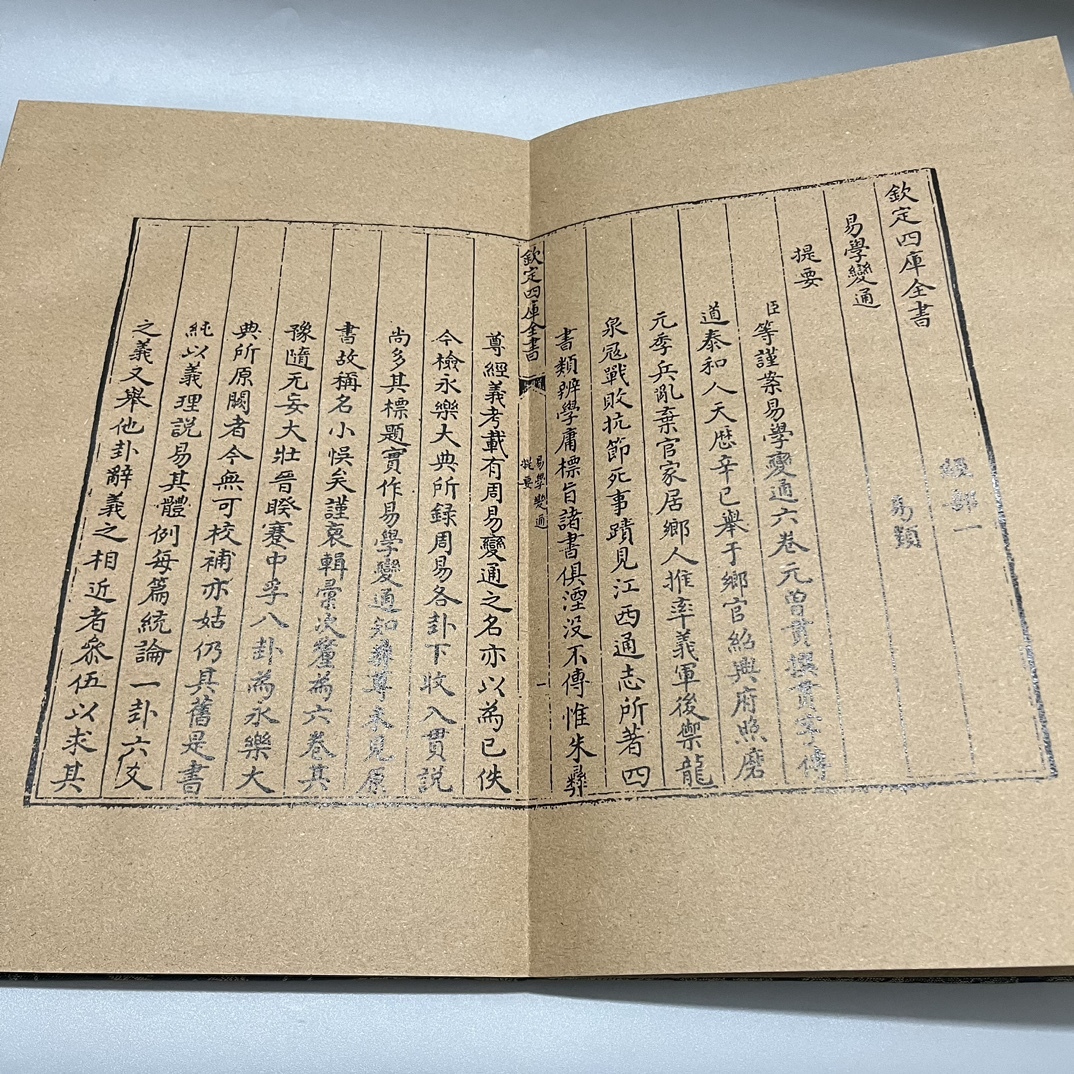 欽定四庫全書
經部一
易學變通
易類
提要
臣等謹案易學變通六卷元曽貫撰貫字傳
道泰和人天歴辛巳舉于鄉官紹興府照磨
元季兵亂棄官家居鄉人推率義軍後禦龍
泉冦戰敗抗節死事蹟見江西通志所著四
書類辨學庸標旨諸書俱湮没不傳惟朱彝
欽定四庫全書
易學變通
提要
一
尊經義考載有周易變通之名亦以為已佚
今檢永樂大典所録周易各卦下收入貫説
尚多其標題實作易學變通知彝尊未見原
書故稱名小悞矣謹裒輯彚次釐為六卷其
豫隨无妄大壯晉睽蹇中孚八卦為永樂大
典所原闕者今無可校補亦姑仍其舊是書
純以義理説易其體例每篇統論一卦六爻
之義又舉他卦辭義之相近者叅伍以求其